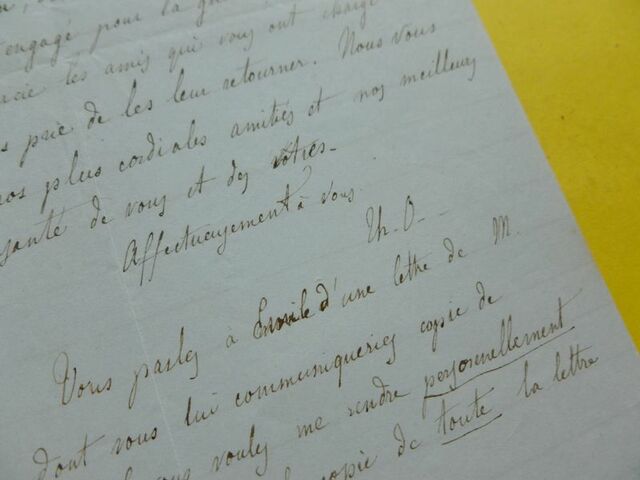 engagé pour la
les amis qui vous ont chargé
prie de les leur retourner. Nous vous
nos plus cordiales amitiés et nos meilleurs
santé de vous et des vôtres_
Affectueusement à vous.
Th. O_
Vous parlez à Emile d'une lettre de M.
dont vous lui communiqueriez copie de
vous voulez me rendre personnellement
copie de toute la lettre